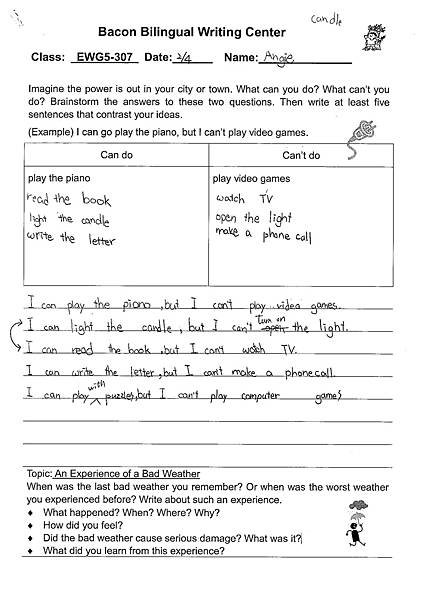 candle
Bacon Bilingual Writing Center
Class: EWG5-307 Date: 2/4 Name: Angie
Imagine the power is out in your city or town. What can you do? What can't you
do? Brainstorm the answers to these two questions. Then write at least five
sentences that contrast your ideas.
(Example) I can go play the piano, but I can't play video games.
Can do Can't do
play the piano play video games
read the book watch TV
light the candle open the light
write the letter make a phone call
I can play the piano, but I can't play video games.
I can light the candle, but I can't open turn on the light.
I can read the book, but I can't watch TV.
I can write the letter, but I can't make a phone call.
I can play with puzzles, but I can't play computer games
Topic: An Experience of a Bad Weather
When was the last bad weather you remember? Or when was the worst weather
you experienced before? Write about such an experience.
♦ What happened? When? Where? Why?
♦ How did you feel?
♦ Did the bad weather cause serious damage? What was it?
♦ What did you learn from this experience?